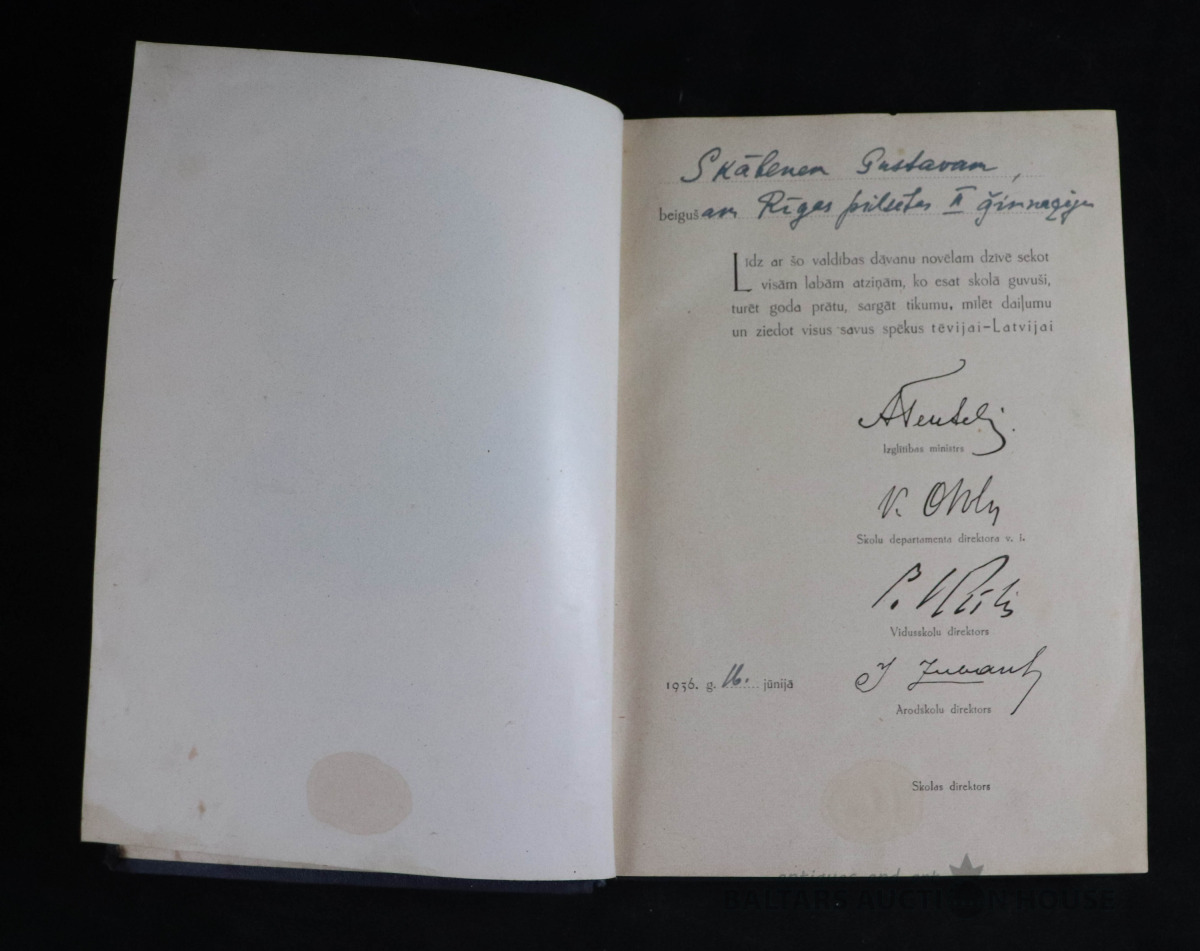 Skābenem Gustavam,
beigušam Rīgas pilsētas II ģimnaziju
Līdz ar šo valdības dāvanu novēlam dzīvē sekot
visām labām atziņām, ko esat skolā guvuši,
turēt goda prātu, sargāt tikumu, mīlēt daiļumu
un ziedot visus savus spēkus tēvijai-Latvijai
ATentelis
Izglītības ministrs
V. Ozols
Skolu departamenta direktora v. i.
Vidusskolu direktors
1936. g. 16. jūnijā
Arodskolu direktors
Skolas direktors
antiques and art
BALTARS AUCTION HOUSE